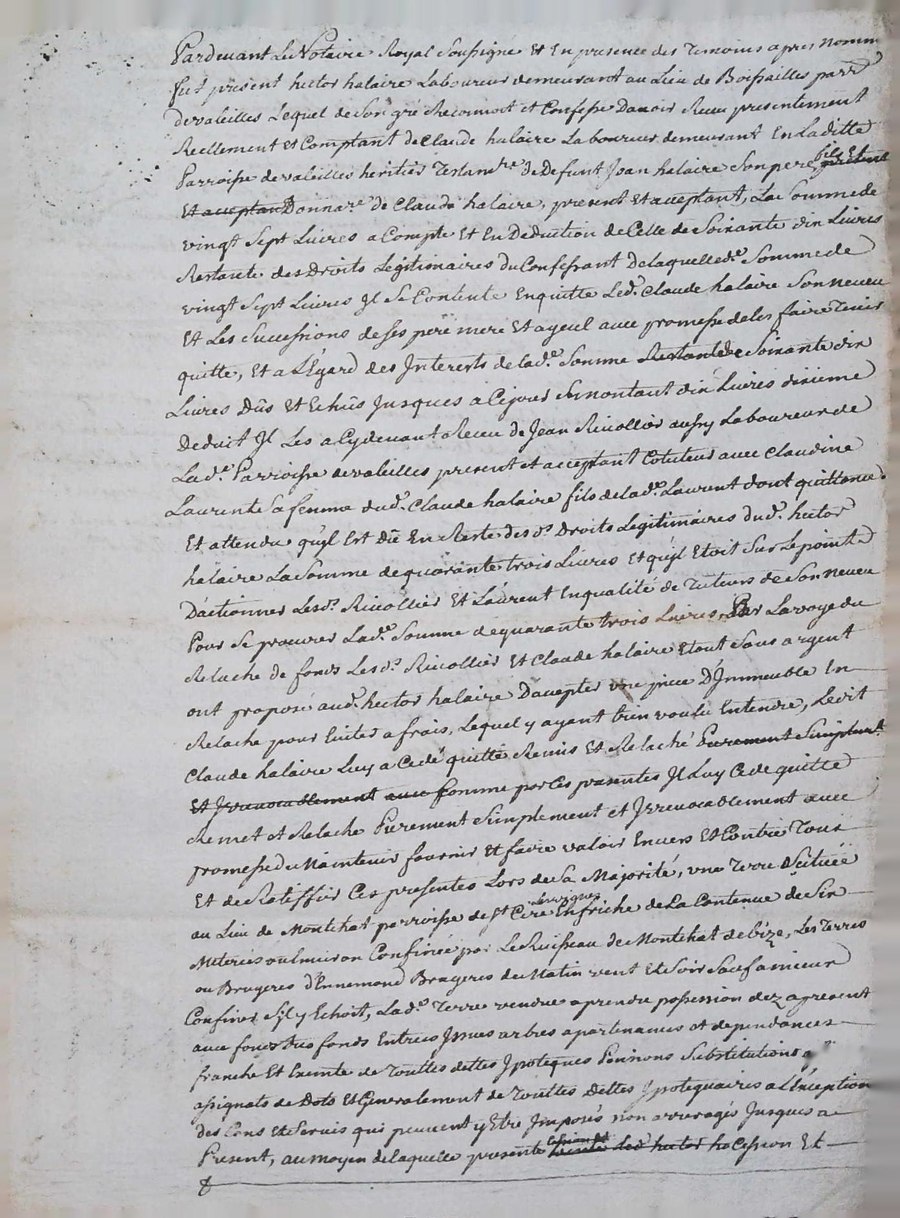 Pardevant Le Notaire Royal Soussigné Et En presence des Temoins apres Nomm
fut présent hector halaire Laboureur demeurant au Lieu de Boissailles parr.
de valeilles Lequel de Son gré Reconnoit et Confesse Davoir Receu presentement
Reellement Et Comptant de Claude halaire Laboureur demeurant En Laditte
Parroisse de valeilles heritier Testam.re de Defunt Jean halaire Son pere fils Et
Et acceptant Donnare. de Claude halaire, present Et acceptant, La Somme de
vingt Sept Livres a Compte Et En Deduction de Celle de Soixante dix Livres
Restante des Droits Légitimaires du Confessant De laquelle de. Somme de
vingt Sept Livres Jl Se Contente En quitte Led. Claude halaire Son neveu
Et Les Successions de Ses pere mere Et ayeul avec promesse de les faire Tenir
quitte, Et a L'Égard des Interests de lad.e Somme Restante de Soixante dix
Livres Dûs Et Echûs Jusques a Cejour Se montant dix Livres dixieme
Deduit Jl Les a Cy devant Receu de Jean Ricollier aussy Laboureur de
Lad.e Parroisse de valeilles present et acceptant Cotuteur avec Claudine
Laurent Sa femme dud. Claude halaire fils de lad.e Laurent dont quittance
Et attendu qu'jl Est Dû En Reste des d.s Droits Légitimaires dud. hector
halaire La Somme de quarante trois Livres Et qu'jl Etoit Sur Le point
D'actionner Lesd. Ricollier Et Laurent En qualité de Tuteurs de Son neveu
Pour Se procurer Lad.e Somme de quarante trois Livres, Par La voye du
Relache de fonds Lesd.s Ricollier Et Claude halaire Etant Sans argent
ont proposé aud. hector halaire D'accepter une piece D'Jmmeuble En
Relache pour Eviter a frais, Lequel y ayant bien voulu Entendre, Ledit
Claude halaire Luy a Cedé quitté Remis Et Relaché Purement Simplement
Et Jrrevocablement avec Comme par Ces presentes Jl Luy Cede quitte
Remet et Relache Purement Simplement et Jrrevocablement avec
promesse de Maintenir fournir Et faire valoir Envers Et Contre Tous
Et de Ratiffier Ces presentes Lors de Sa Majorité, une Terre Scituée
au Lieu de Montchat parroisse de St Cire Les vignes En friche de La Contenue de Six
Meterées ou Environ Confinée par Le Ruisseau de Montchat de bize, Les Terres
ou Bruyeres d'Ennemond Bruyeres de Matin vent Et Soir Sauf a mieux
Confiner S'jl y Echoit, Lad.e Terre vendue a prendre possession dez a present
avec fonds Tres fonds Entrées Jssues arbres apartenances et dependances
franche Et Exempte de Touttes dettes Jpoteques Pensions Substitutions
assignats de Dots Et Generalement de Touttes Dettes Jpotequaires a L'Exception
des Cens Et Servis qui peuvent y Etre Jmposés non arreragés Jusques a
Present, au moyen de laquelle presente Cession Et vente led. hector ha Cession Et